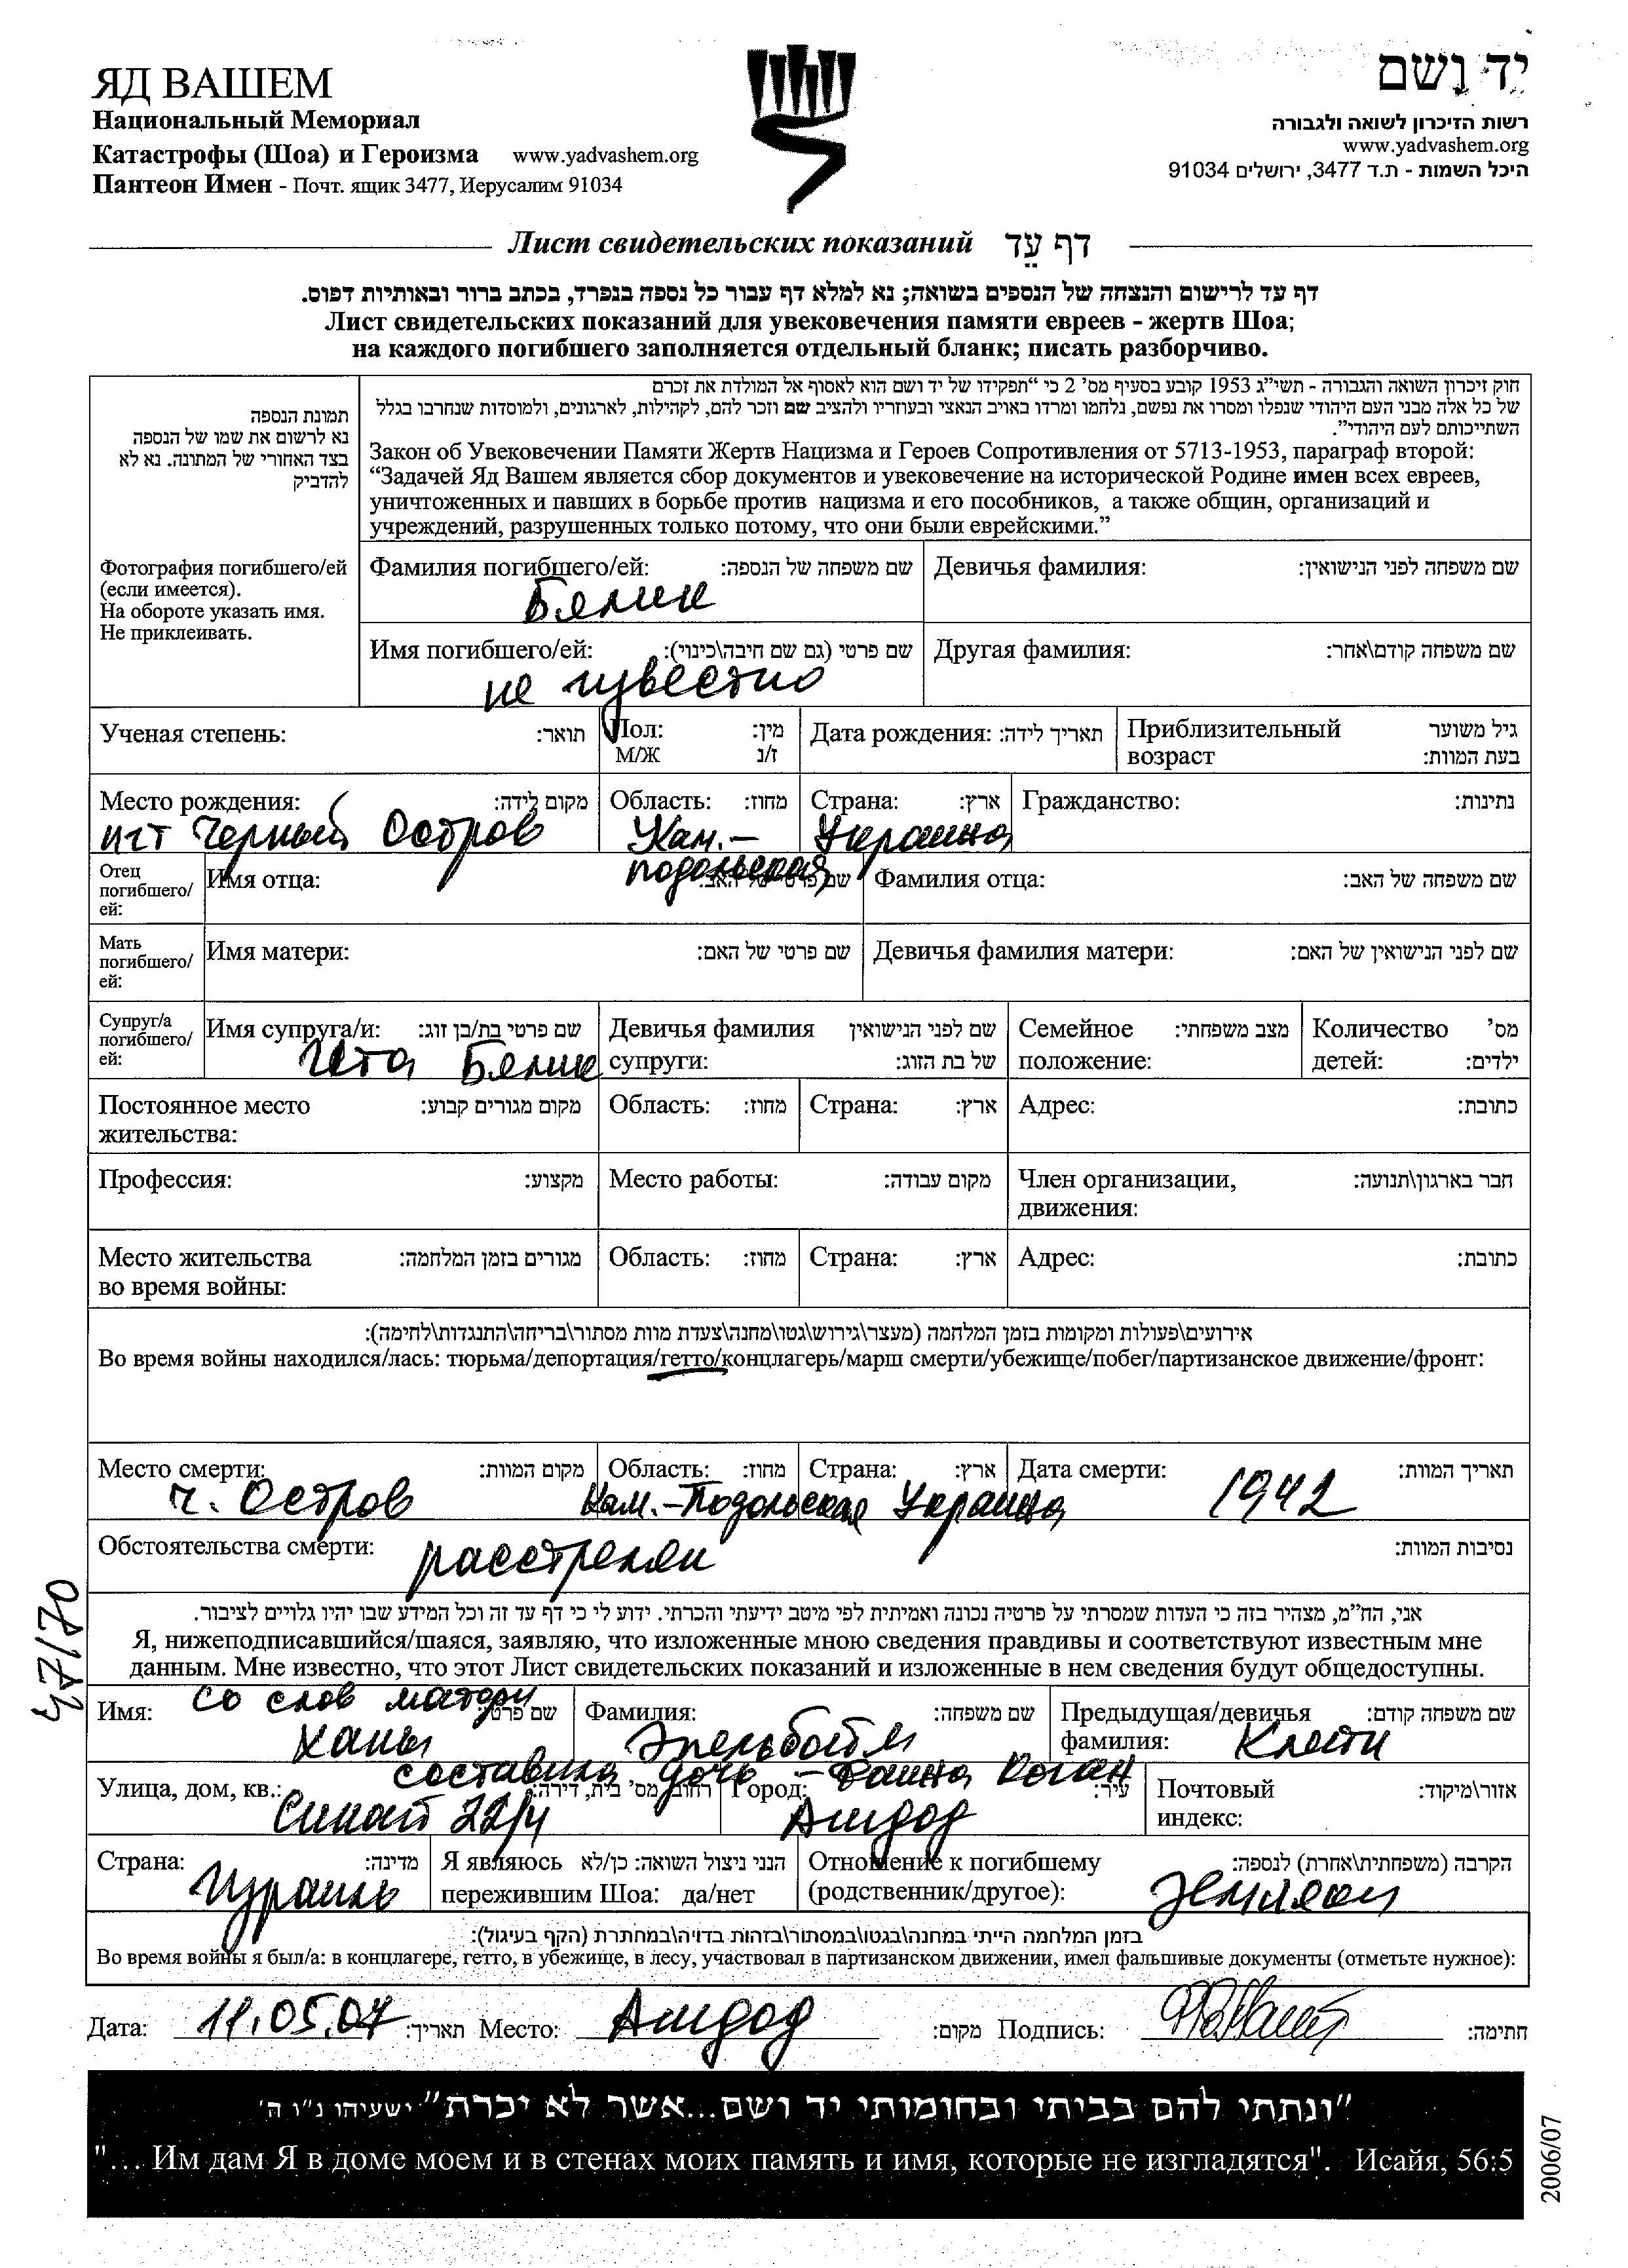 ЯД ВАШЕМ
Национальный Мемориал
Катастрофы (Шоа) и Героизма www.yadvashem.org
Пантеон Имен - Почт. ящик 3477, Иерусалим 91034
יד ושם
רשות הזיכרון לשואה ולגבורה
www.yadvashem.org
היכל השמות - ת.ד 3477, ירושלים 91034
Лист свидетельских показаний דף עֵד
דף עד לרישום והנצחה של הנספים בשואה; נא למלא דף עבור כל נספה בנפרד, בכתב ברור ובאותיות דפוס.
Лист свидетельских показаний для увековечения памяти евреев - жертв Шоа;
на каждого погибшего заполняется отдельный бланк; писать разборчиво.
תמונת הנספה
נא לרשום את שמו של הנספה
בצד האחורי של המתונה. נא לא
להדביק
Фотография погибшего/ей
(если имеется).
На обороте указать имя.
Не приклеивать.
חוק זיכרון השואה והגבורה - תשי"ג 1953 קובע בסעיף מס' 2 כי "תפקידו של יד ושם הוא לאסוף אל המולדת את זכרם
של כל אלה מבני העם היהודי שנפלו ומסרו את נפשם, נלחמו ומרדו באויב הנאצי ובעוזריו ולהציב שם וזכר להם, לקהילות, לארגונים, ולמוסדות שנחרבו בגלל
השתייכותם לעם היהודי".
Закон об Увековечении Памяти Жертв Нацизма и Героев Сопротивления от 5713-1953, параграф второй:
“Задачей Яд Вашем является сбор документов и увековечение на исторической Родине имен всех евреев,
уничтоженных и павших в борьбе против нацизма и его пособников, а также общин, организаций и
учреждений, разрушенных только потому, что они были еврейскими.”
Фамилия погибшего/ей: שם משפחה של הנספה: Девичья фамилия: שם משפחה לפני הנישואין:
Бялик
Имя погибшего/ей: שם פרטי (גם שם חיבה\כינוי): Другая фамилия: שם משפחה קודם\אחר:
не известно
Ученая степень: תואר: Пол: מין: Дата рождения: תאריך לידה: Приблизительный גיל משוער
М/Ж ז/נ возраст בעת המוות:
Место рождения: מקום לידה: Область: מחוז: Страна: ארץ: Гражданство: נתינות:
пгт Черный Остров Кам.- Украина
подольская
Отец
погибшего/
ей:
Имя отца: שם פרטי של האב: Фамилия отца: שם משפחה של האב:
Мать
погибшего/
ей:
Имя матери: שם פרטי של האם: Девичья фамилия матери: שם לפני הנישואין של האם:
Супруг/а
погибшего/
ей:
Имя супруга/и: שם פרטי בת/בן זוג: Девичья фамилия שם לפני הנישואין Семейное מצב משפחתי: Количество מס'
супруги: של בת הזוג: положение: детей: ילדים:
Гета Бялик
Постоянное место מקום מגורים קבוע: Область: מחוז: Страна: ארץ: Адрес: כתובת:
жительства:
Профессия: מקצוע: Место работы: מקום עבודה: Член организации, חבר בארגון\תנועה:
движения:
Место жительства מגורים בזמן המלחמה: Область: מחוז: Страна: ארץ: Адрес: כתובת:
во время войны:
אירועים\פעולות ומקומות בזמן המלחמה (מעצר\גירוש\גטו\מחנה\צעדת מוות מסתור\בריחה\התנגדות\לחימה):
Во время войны находился/лась: тюрьма/депортация/гетто/концлагерь/марш смерти/убежище/побег/партизанское движение/фронт:
Место смерти: מקום המוות: Область: מחוז: Страна: ארץ: Дата смерти: תאריך המוות:
ч. Остров Кам.-Подольская Украина 1942
Обстоятельства смерти: נסיבות המוות:
расстрелян
47/70
אני, הח"מ, מצהיר בזה כי העדות שמסרתי על פרטיה נכונה ואמיתית לפי מיטב ידיעתי והכרתי. ידוע לי כי דף עד זה וכל המידע שבו יהיו גלויים לציבור.
Я, нижеподписавшийся/шаяся, заявляю, что изложенные мною сведения правдивы и соответствуют известным мне
данным. Мне известно, что этот Лист свидетельских показаний и изложенные в нем сведения будут общедоступны.
со слов матери
Имя: שם פרטי: Фамилия: שם משפחה: Предыдущая/девичья שם משפחה קודם:
фамилия:
Ханы Эпельбойм
составила дочь - Фаина Коган
Улица, дом, кв.: רחוב, מס' בית, דירה: Город: עיר: Почтовый אזור\מיקוד:
индекс:
Синай 22/4 Ашдод
Страна: מדינה: Я являюсь הנני ניצול השואה: כן/לא Отношение к погибшему הקרבה (משפחתית\אחרת) לנספה:
пережившим Шоа: да/нет (родственник/другое):
Израиль земляки
בזמן המלחמה הייתי במחנה\בגטו\במסתור\בזהות בדויה\במחתרת (הקף בעיגול):
Во время войны я был/а: в концлагере, гетто, в убежище, в лесу, участвовал в партизанском движении, имел фальшивые документы (отметьте нужное):
Дата: 11.05.07 תאריך: Место: Ашдод מקום: Подпись: חתימה:
"ונתתי להם בביתי ובחומותי יד ושם...אשר לא יכרת" ישעיהו נ"ו ה'
"... Им дам Я в доме моем и в стенах моих память и имя, которые не изгладятся". Исайя, 56:5
2006/07